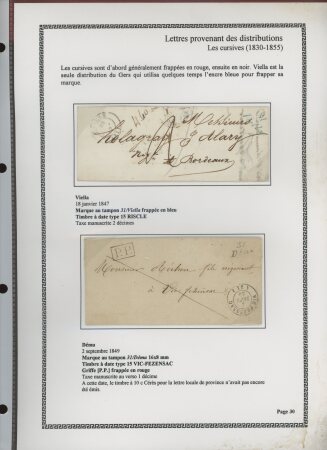 Lettres provenant des distributions
Les cursives (1830-1855)
Les cursives sont d'abord généralement frappées en rouge, ensuite en noir. Viella est la
seule distribution du Gers qui utilisa quelques temps l'encre bleue pour frapper sa
marque.
Messieurs
à Bordeaux
Viella
18 janvier 1847
Marque au tampon 31/Viella frappée en bleu
Timbre à date type 15 RISCLE
Taxe manuscrite 2 décimes
P.P.
31
Dému
Monsieur fils negociant
à Vic fezensac
Dému
2 septembre 1849
Marque au tampon 31/Dému 16x8 mm
Timbre à date type 15 VIC-FEZENSAC
Griffe [P.P.] frappée en rouge
Taxe manuscrite au verso 1 décime
A cette date, le timbre à 10 c Cérès pour la lettre locale de province n'avait pas encore
été émis.
Page 30